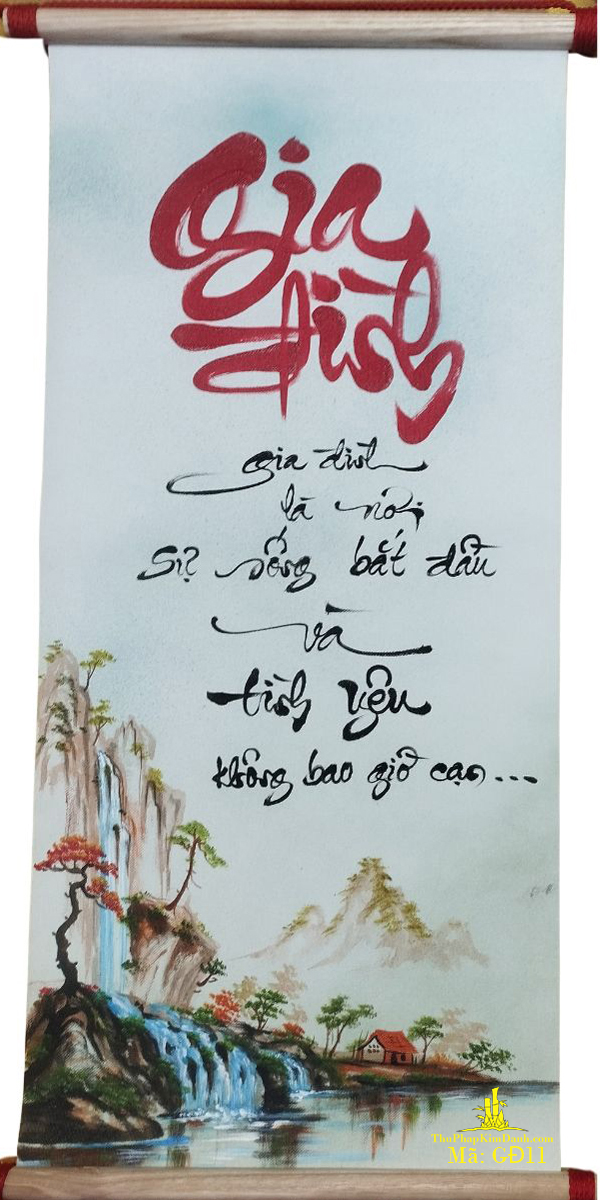 Gia
Đình
Gia đình
là nơi
Sự sống bắt đầu
và
tình yêu
không bao giờ cạn...
ThuPhapKimDanh.com
Mã: GĐ11